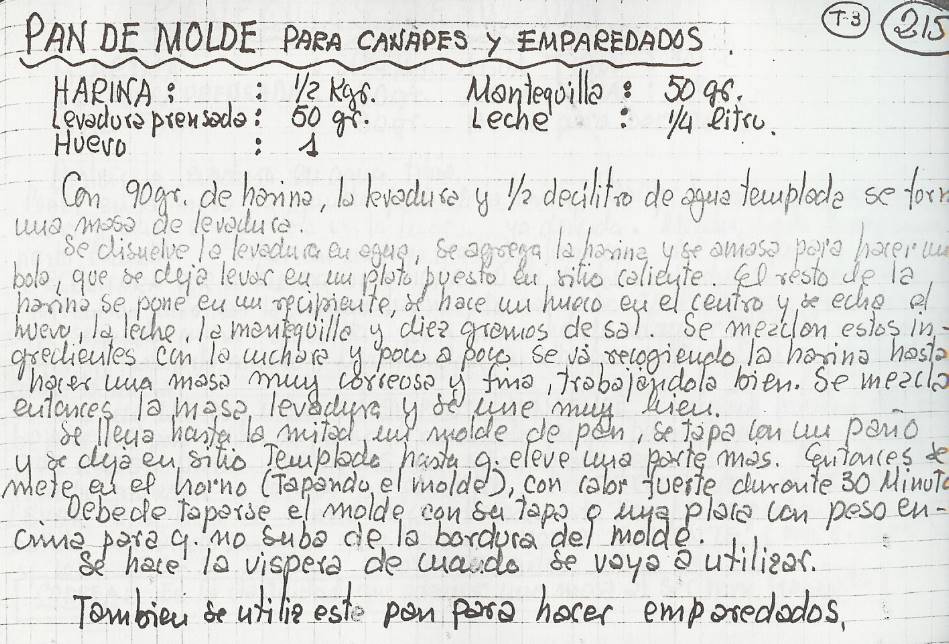 T-3 215
PAN DE MOLDE PARA CANAPES Y EMPAREDADOS.
HARINA : : 1/2 Kgr. Mantequilla : 50 gr.
Levadura prensada : 50 gr. Leche : 1/4 litro.
Huevo : 1
Con 90gr. de harina, la levadura y 1/2 decilitro de agua templada se form
una masa de levadura.
Se disuelve la levadura en agua, se agrega la harina y se amasa para hacer un
bola, que se deja levar en un plato puesto en sitio caliente. El resto de la
harina se pone en un recipiente, se hace un hueco en el centro y se echa el
huevo, la leche, la mantequilla y diez gramos de sal. Se mezclan estos in-
gredientes con la cuchara y poco a poco se vá recogiendo la harina hasta
hacer una masa muy correosa y fina, trabajándola bien. Se mezcla
entonces la masa levadura y se une muy bien.
Se llena hasta la mitad un molde de pan, se tapa con un paño
y se deja en sitio Templado hasta q. eleve una parte mas. Entonces se
mete en el horno (Tapando el molde), con calor fuerte durante 30 Minuto
Debede taparse el molde con su tapa o una placa con peso en-
cima para q. no suba de la bordura del molde.
Se hace la vispera de cuando se vaya a utilizar.
Tambien se utiliz este pan para hacer emparedados.